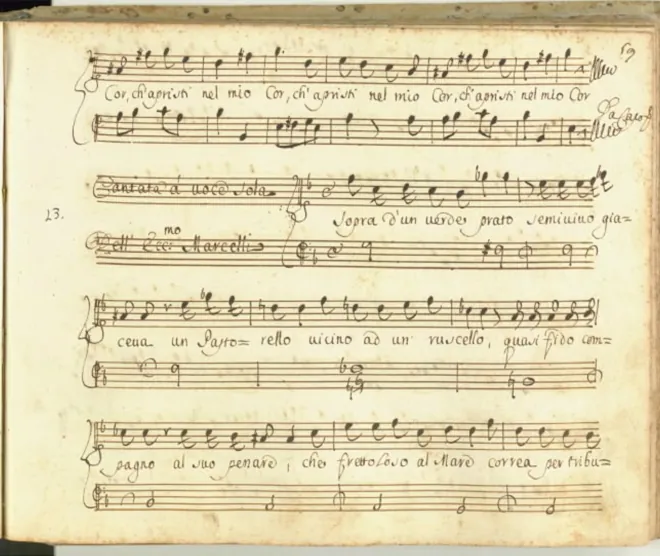 59
Cor, ch'apristi nel mio Cor, ch'apristi nel mio Cor, ch'apristi nel mio Cor
Da Capo
Cantata à voce sola
23.
Sopra d'un uerde prato semiuiuo gia=
Dell' Ecc.mo Marcelli
ceua un Pasto= rello uicino ad un ruscello, quasi fido com=
pagno al suo penare, che frettoloso al Mare correa per tribu=